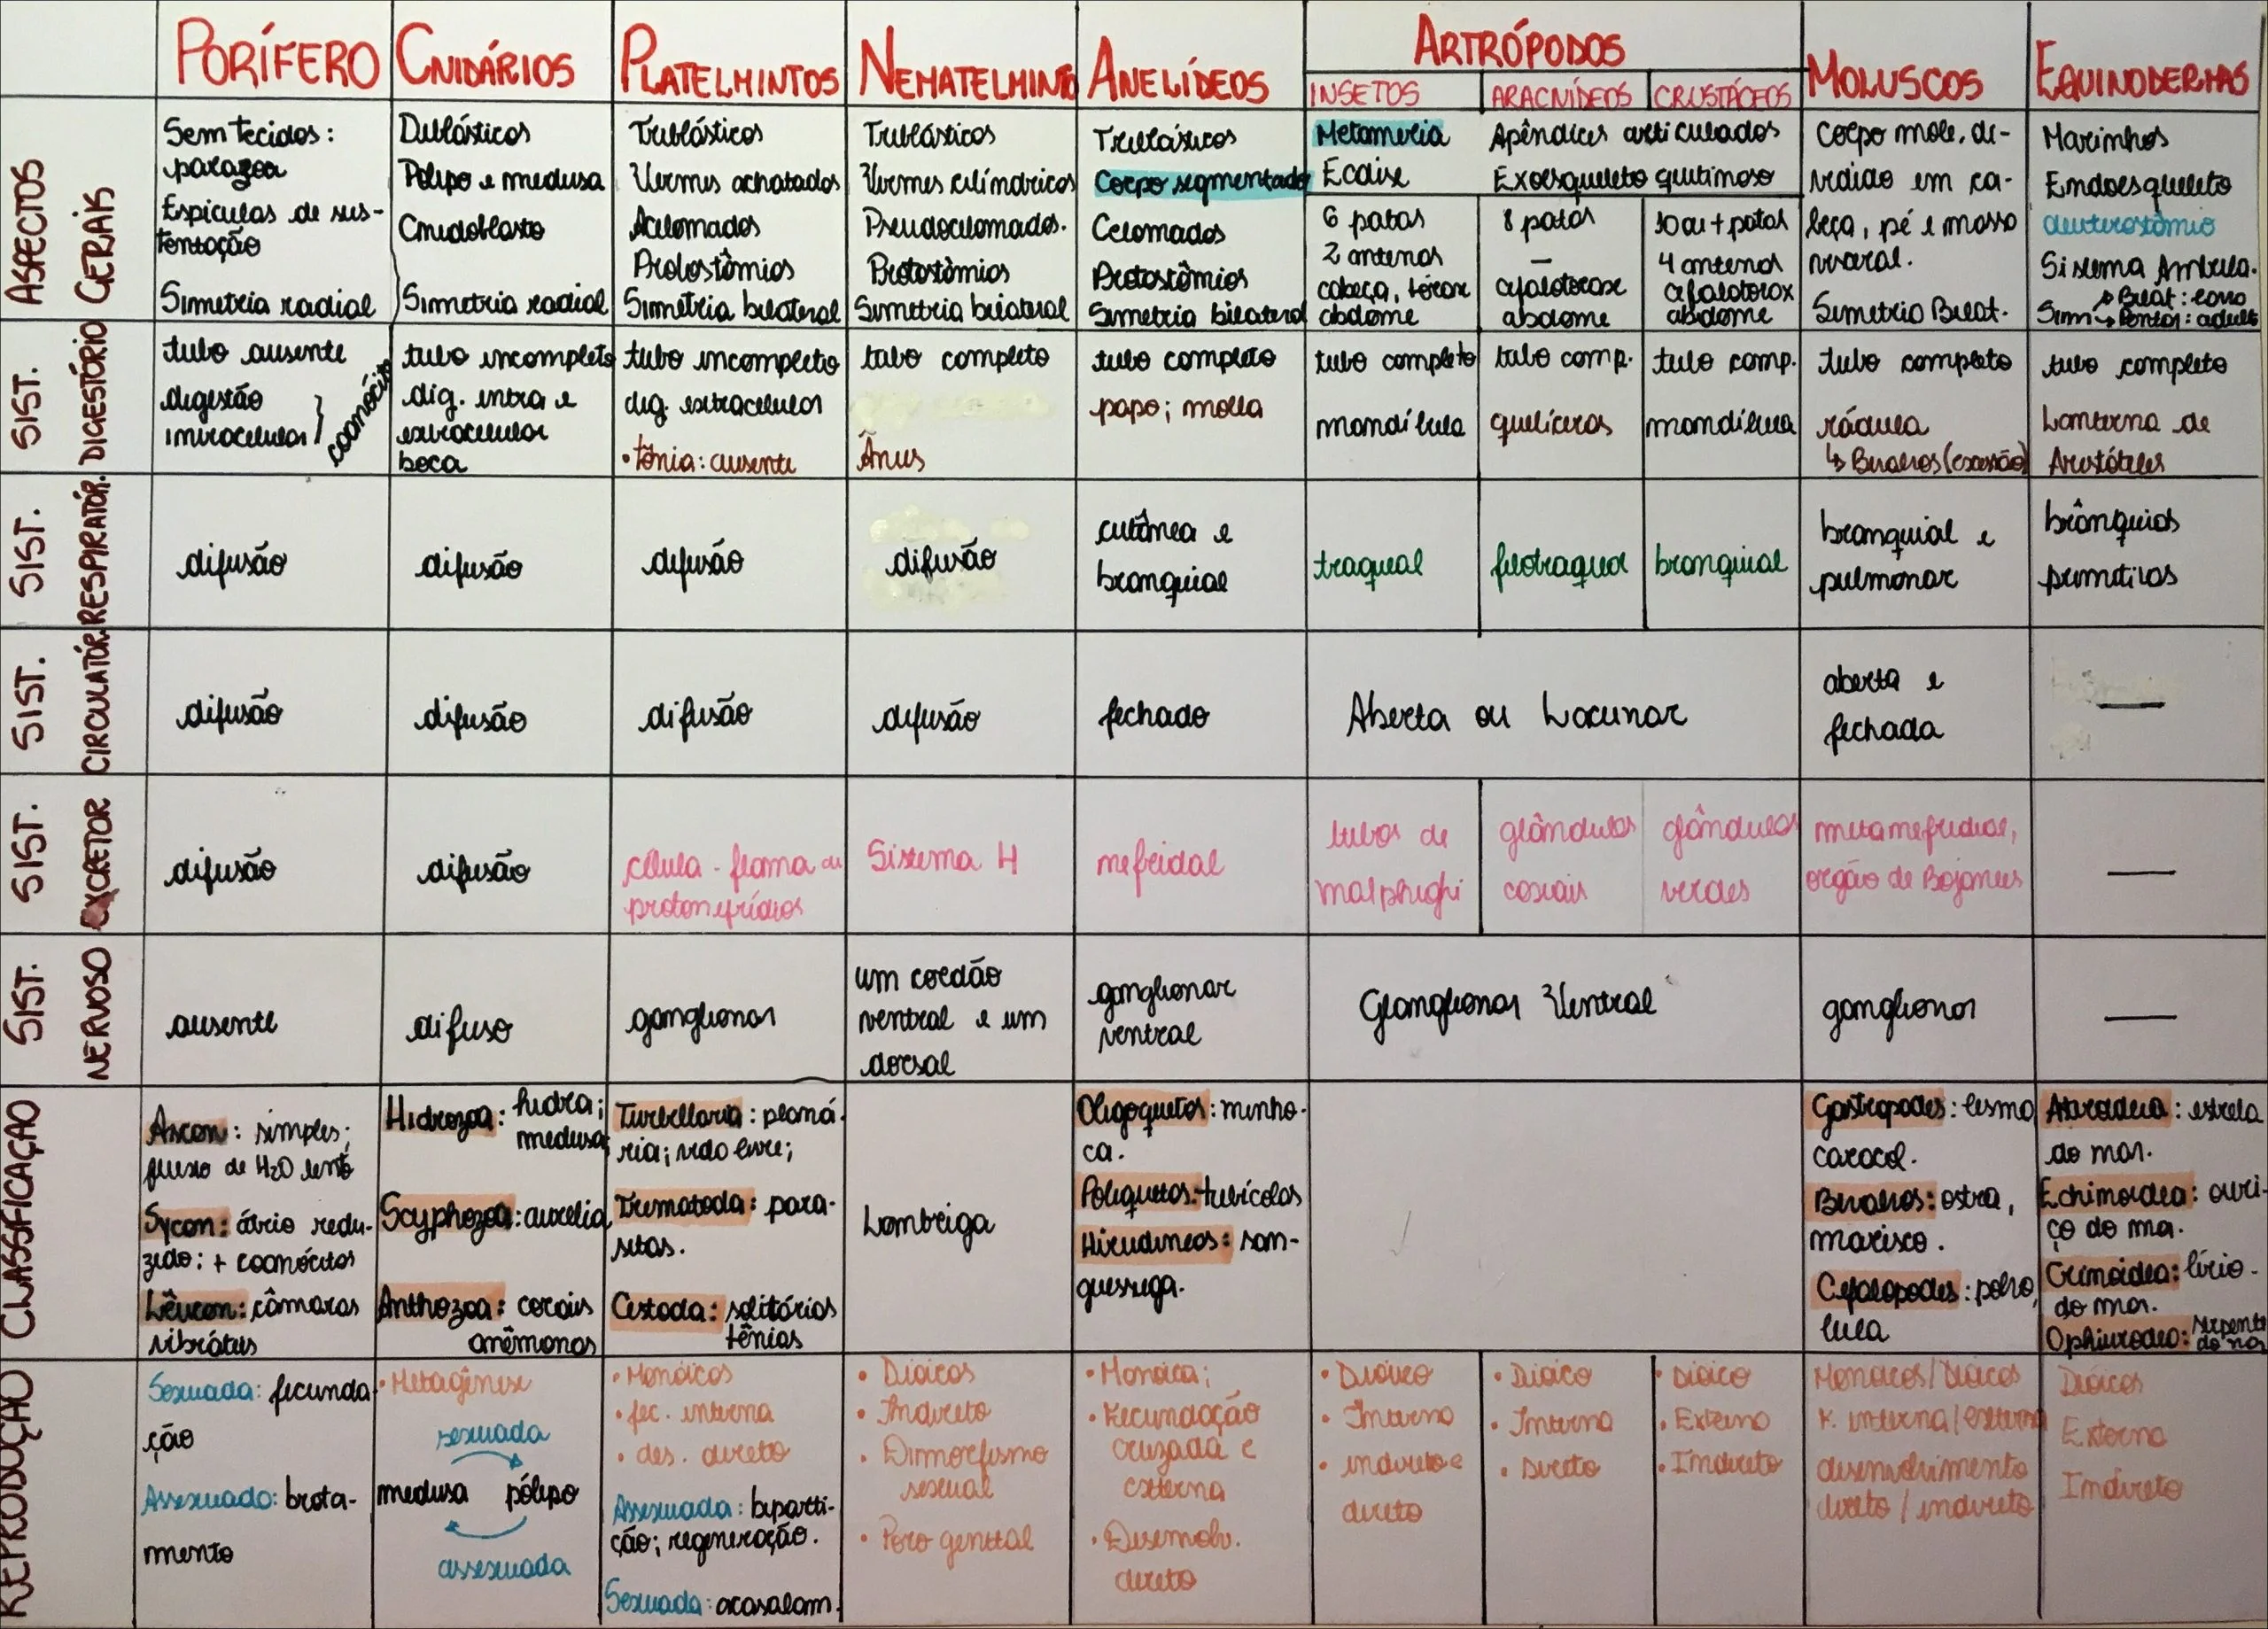 PORÍFERO
CNIDÁRIOS
PLATELMINTOS
NEMATELMINTO
ANELÍDEOS
ARTRÓPODOS
INSETOS
ARACNÍDEOS
CRUSTÁCEOS
MOLUSCOS
EQUINODERMAS
ASPECTOS
GERAIS
Sem tecidos:
parazoa
Espículas de sus-
tentação
Simetria radial
Diblásticos
Pólipo e medusa
Cnidoblasto
Simetria radial
Triblásticos
Vermes achatados
Acelomados
Protostômios
Simetria bilateral
Triblásticos
Vermes cilíndricos
Pseudocelomados.
Protostômios
Simetria bilateral
Triblásticos
Corpo segmentado
Celomados
Protostômios
Simetria bilateral
Metameria
Ecdise
Apêndices articulados
Exoesqueleto quitinoso
6 patas
2 antenas
cabeça, tórax
abdome
8 patas
—
cefalotorax
abdome
10 ou + patas
4 antenas
cefalotorax
abdome
Corpo mole, di-
vidido em ca-
beça, pé e massa
visceral.
Simetria Bilat.
Marinhos
Endoesqueleto
deuterostômio
Sistema Ambula.
Sim → Bilat: larva
→ Penta: adulto
SIST.
DIGESTÓRIO
tubo ausente
digestão
intracelular } coanócito
tubo incompleto
dig. intra e
extracelular
boca
tubo incompleto
dig. extracelular
• tênia: ausente
tubo completo
Ânus
tubo completo
papo; moela
tubo completo
mandíbula
tubo comp.
quelíceras
tubo comp.
mandíbula
tubo completo
rádula
↳ Bivalves (exceção)
tubo completo
Lanterna de
Aristóteles
SIST.
RESPIRATÓR.
difusão
difusão
difusão
difusão
cutânea e
branquial
traqueal
filotraqueal
branquial
branquial e
pulmonar
brânquias
primitivas
SIST.
CIRCULATÓR.
difusão
difusão
difusão
difusão
fechado
Aberta ou Lacunar
aberta e
fechada
—
SIST.
EXCRETOR
difusão
difusão
célula-flama ou
protonefrídios
Sistema H
nefridial
tubos de
malphighi
glândulas
coxais
glândulas
verdes
metanefridial,
orgão de Bojanus
—
SIST.
NERVOSO
ausente
difuso
ganglionar
um cordão
ventral e um
dorsal
ganglionar
ventral
Ganglionar Ventral
ganglionar
—
CLASSIFICAÇÃO
Ascon: simples;
fluxo de H2O lento
Sycon: átrio redu-
zido: + coanócitos
Lêucon: câmaras
vibráteis
Hidrozoa: hidra;
medusa
Scyphozoa: aurelia
Anthozoa: corais
anêmonas
Turbellaria: planá-
ria; vida livre;
Trematoda: para-
sitas.
Cestoda: solitárias
tênias
Lombriga
Oligoquetos: minho-
ca.
Poliquetos: tubícolas
Hirudíneos: san-
guessuga.
Gastropodes: lesma
caracol.
Bivalves: ostra,
marisco.
Cefalopodes: polvo,
lula
Asteroidea: estrela
do mar.
Echinoidea: ouri-
ço do mar.
Crinoidea: lírio-
do mar.
Ophiuroidea: serpente
do mar
REPRODUÇÃO
Sexuada: fecunda
ção
Assexuada: brota-
mento
• Metagênese
sexuada
medusa pólipo
assexuada
• Monóicos
• fec. interna
• des. direto
Assexuada: biparti-
ção; regeneração.
Sexuada: acasalam.
• Dióicos
• Indireto
• Dimorfismo
sexual
• Poro genital
• Monóica;
• Fecundação
cruzada e
externa
• Desenvolv.
direto
• Dióico
• Interna
• indireto e
direto
• Dióico
• Interna
• Direto
• Dióico
• Externo
• Indireto
Monóicos/Dióicos
F. interna/externa
desenvolvimento
direto / indireto
Dióicos
Externa
Indireto